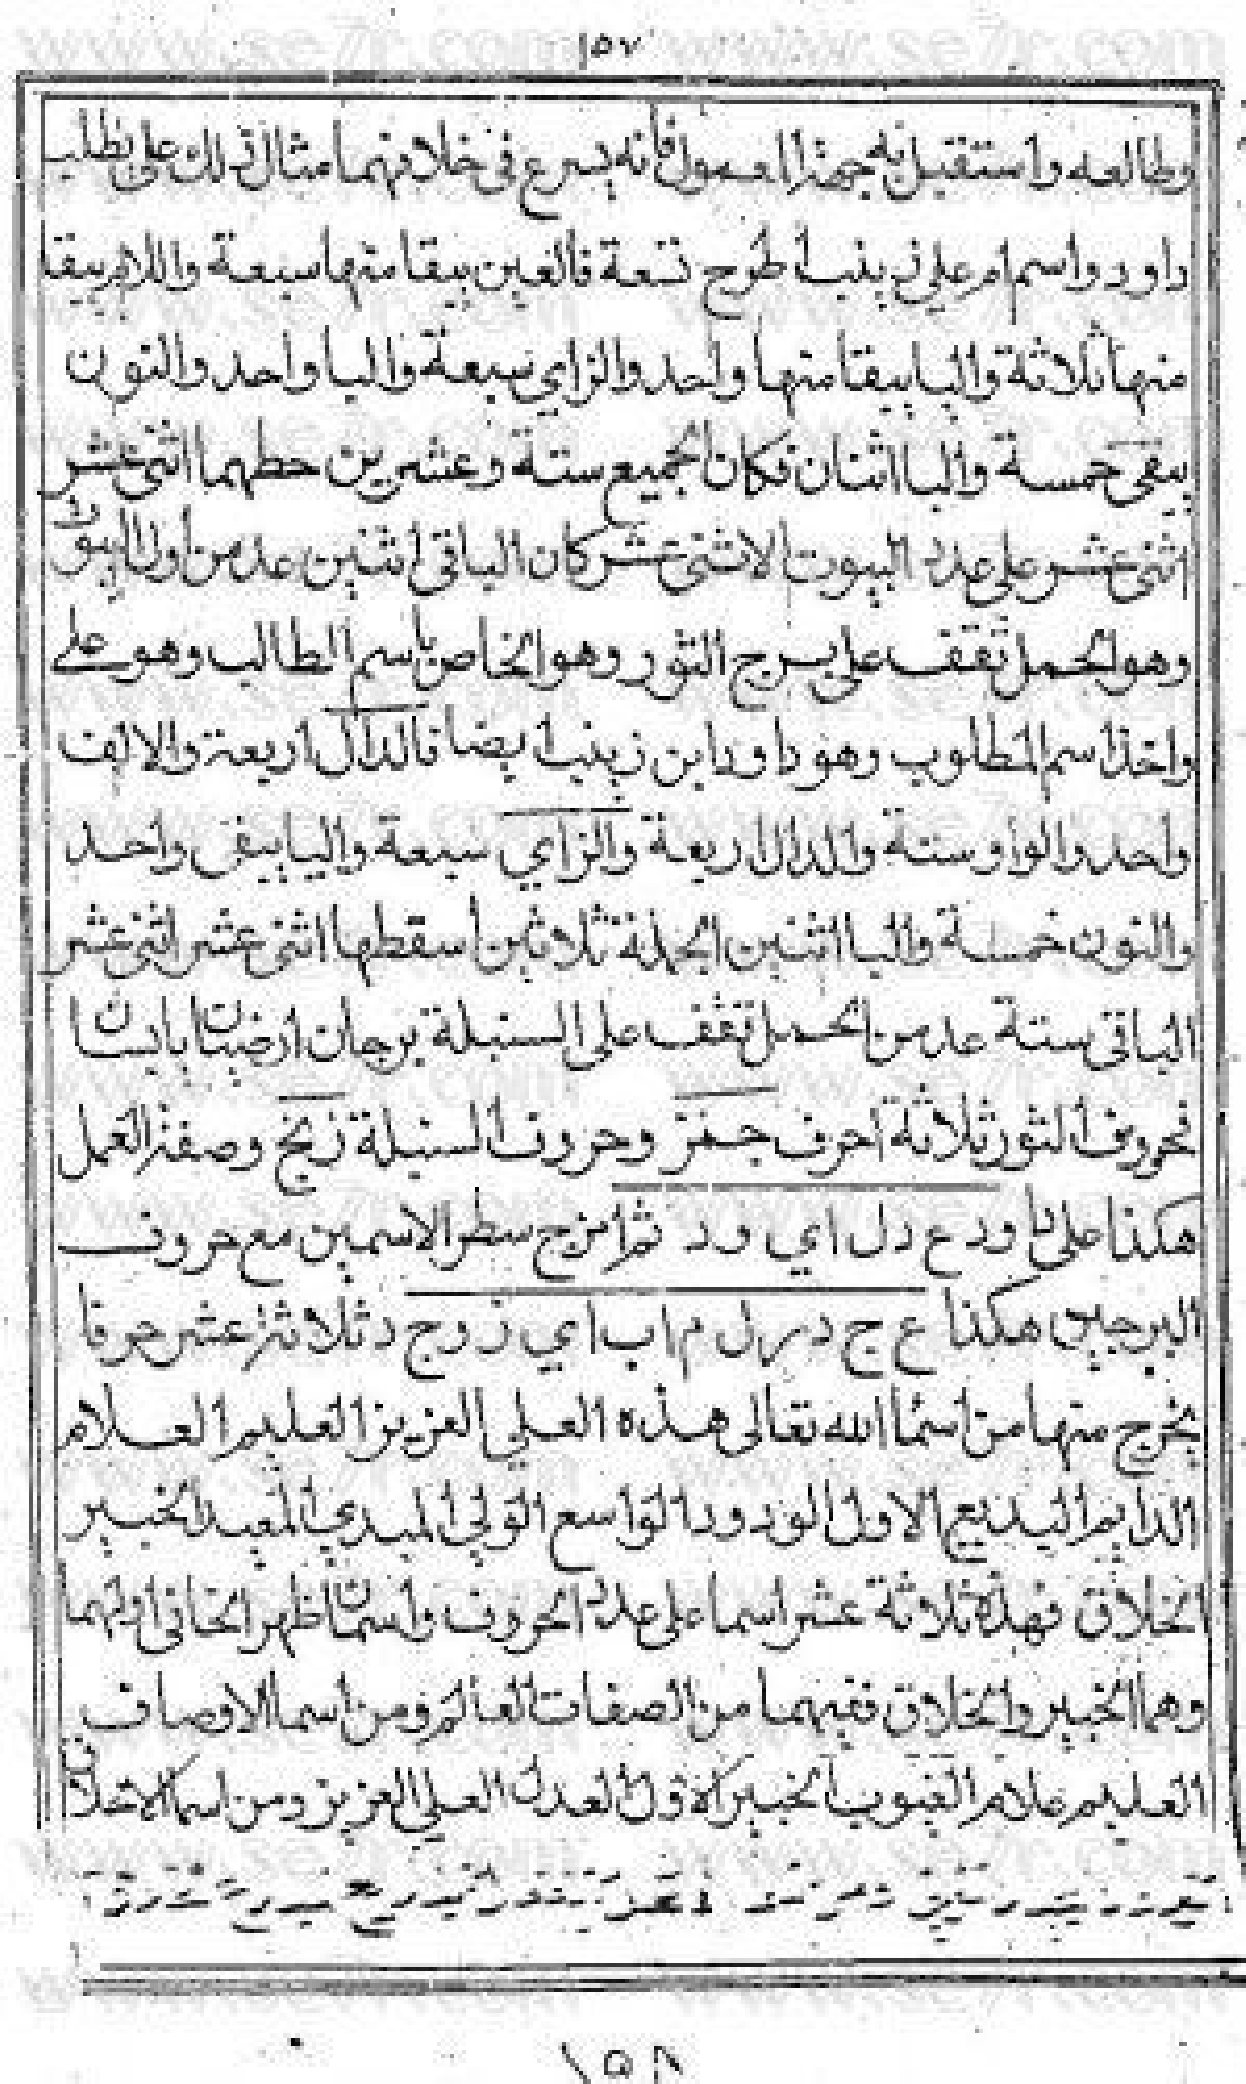 ١٥٧
وطالعه واستقبل به جهة المعمول فأنه يسرع في خلافهما مثال ذلك علي يطلب
داود واسم ام علي زينب اطرح تسعة فالعين يبقا منها سبعة واللام يبقا
منها ثلاثة واليا يبقا منها واحد والزاي سبعة واليا واحد والنون
يبقى خمسة والبا اثنان فكان الجميع ستة وعشرين حطهما اثنى عشر
اثنى عشر على عدد البيوت الاثنى عشر كان الباقي اثنين عد من اول البيوت
وهو الحمل تقف على برج الثور وهو الخاص باسم الطالب وهو علي
واخذ اسم المطلوب وهو داود ابن زينب ايضا فالدال اربعة والالف
واحد والواو ستة والدال اربعة والزاي سبعة واليا يبقى واحد
والنون خمسة والبا اثنين الجملة ثلاثين أسقطها اثنى عشر اثنى عشر
الباقي ستة عد من الحمل تقف على السنبلة برجان ارضيان يابسان
فحروف الثور ثلاثة احرف جمز وحروف السنبلة زيخ وصفة العمل
هكذا علي داود ع د ل ا ي و د ثم امزج سطر الاسمين مع حروف
البرجين هكذا ع ج د م ل م ا ب ا ي ز و ج د ثلاثة عشر حرفا
يخرج منها من اسما الله تعالى هذه العلي العزيز العليم العلام
الدايم البديع الاول الودود الواسع الولي المبدي المعيد الخبير
الخلاق فهذه ثلاثة عشر اسما على عدد الحروف واسمان اظهر الخافي اولهما
وهما الخبير والخلاق ففيهما من الصفات العالم ومن اسما الاوصاف
العليم علام الغيوب الخبير الاول العدل العلي العزيز ومن اسما الاخلاق
١٥٨